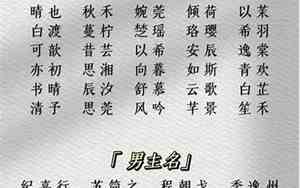 晴也 秋禾 婉莞 倾荷 以茉
白渡 蔓柠 埜瑶 珞璎 希羽
可歆 昔芸 以希 安辰 逸棠
亦初 思湘 向暮 如斯 青欢
书晴 辰汐 舒慕 云歌 白芷
清子 思莞 风吟 芊景 笙禾
「男主名」
纪嘉行 苏简之 程朝戈 季逸州